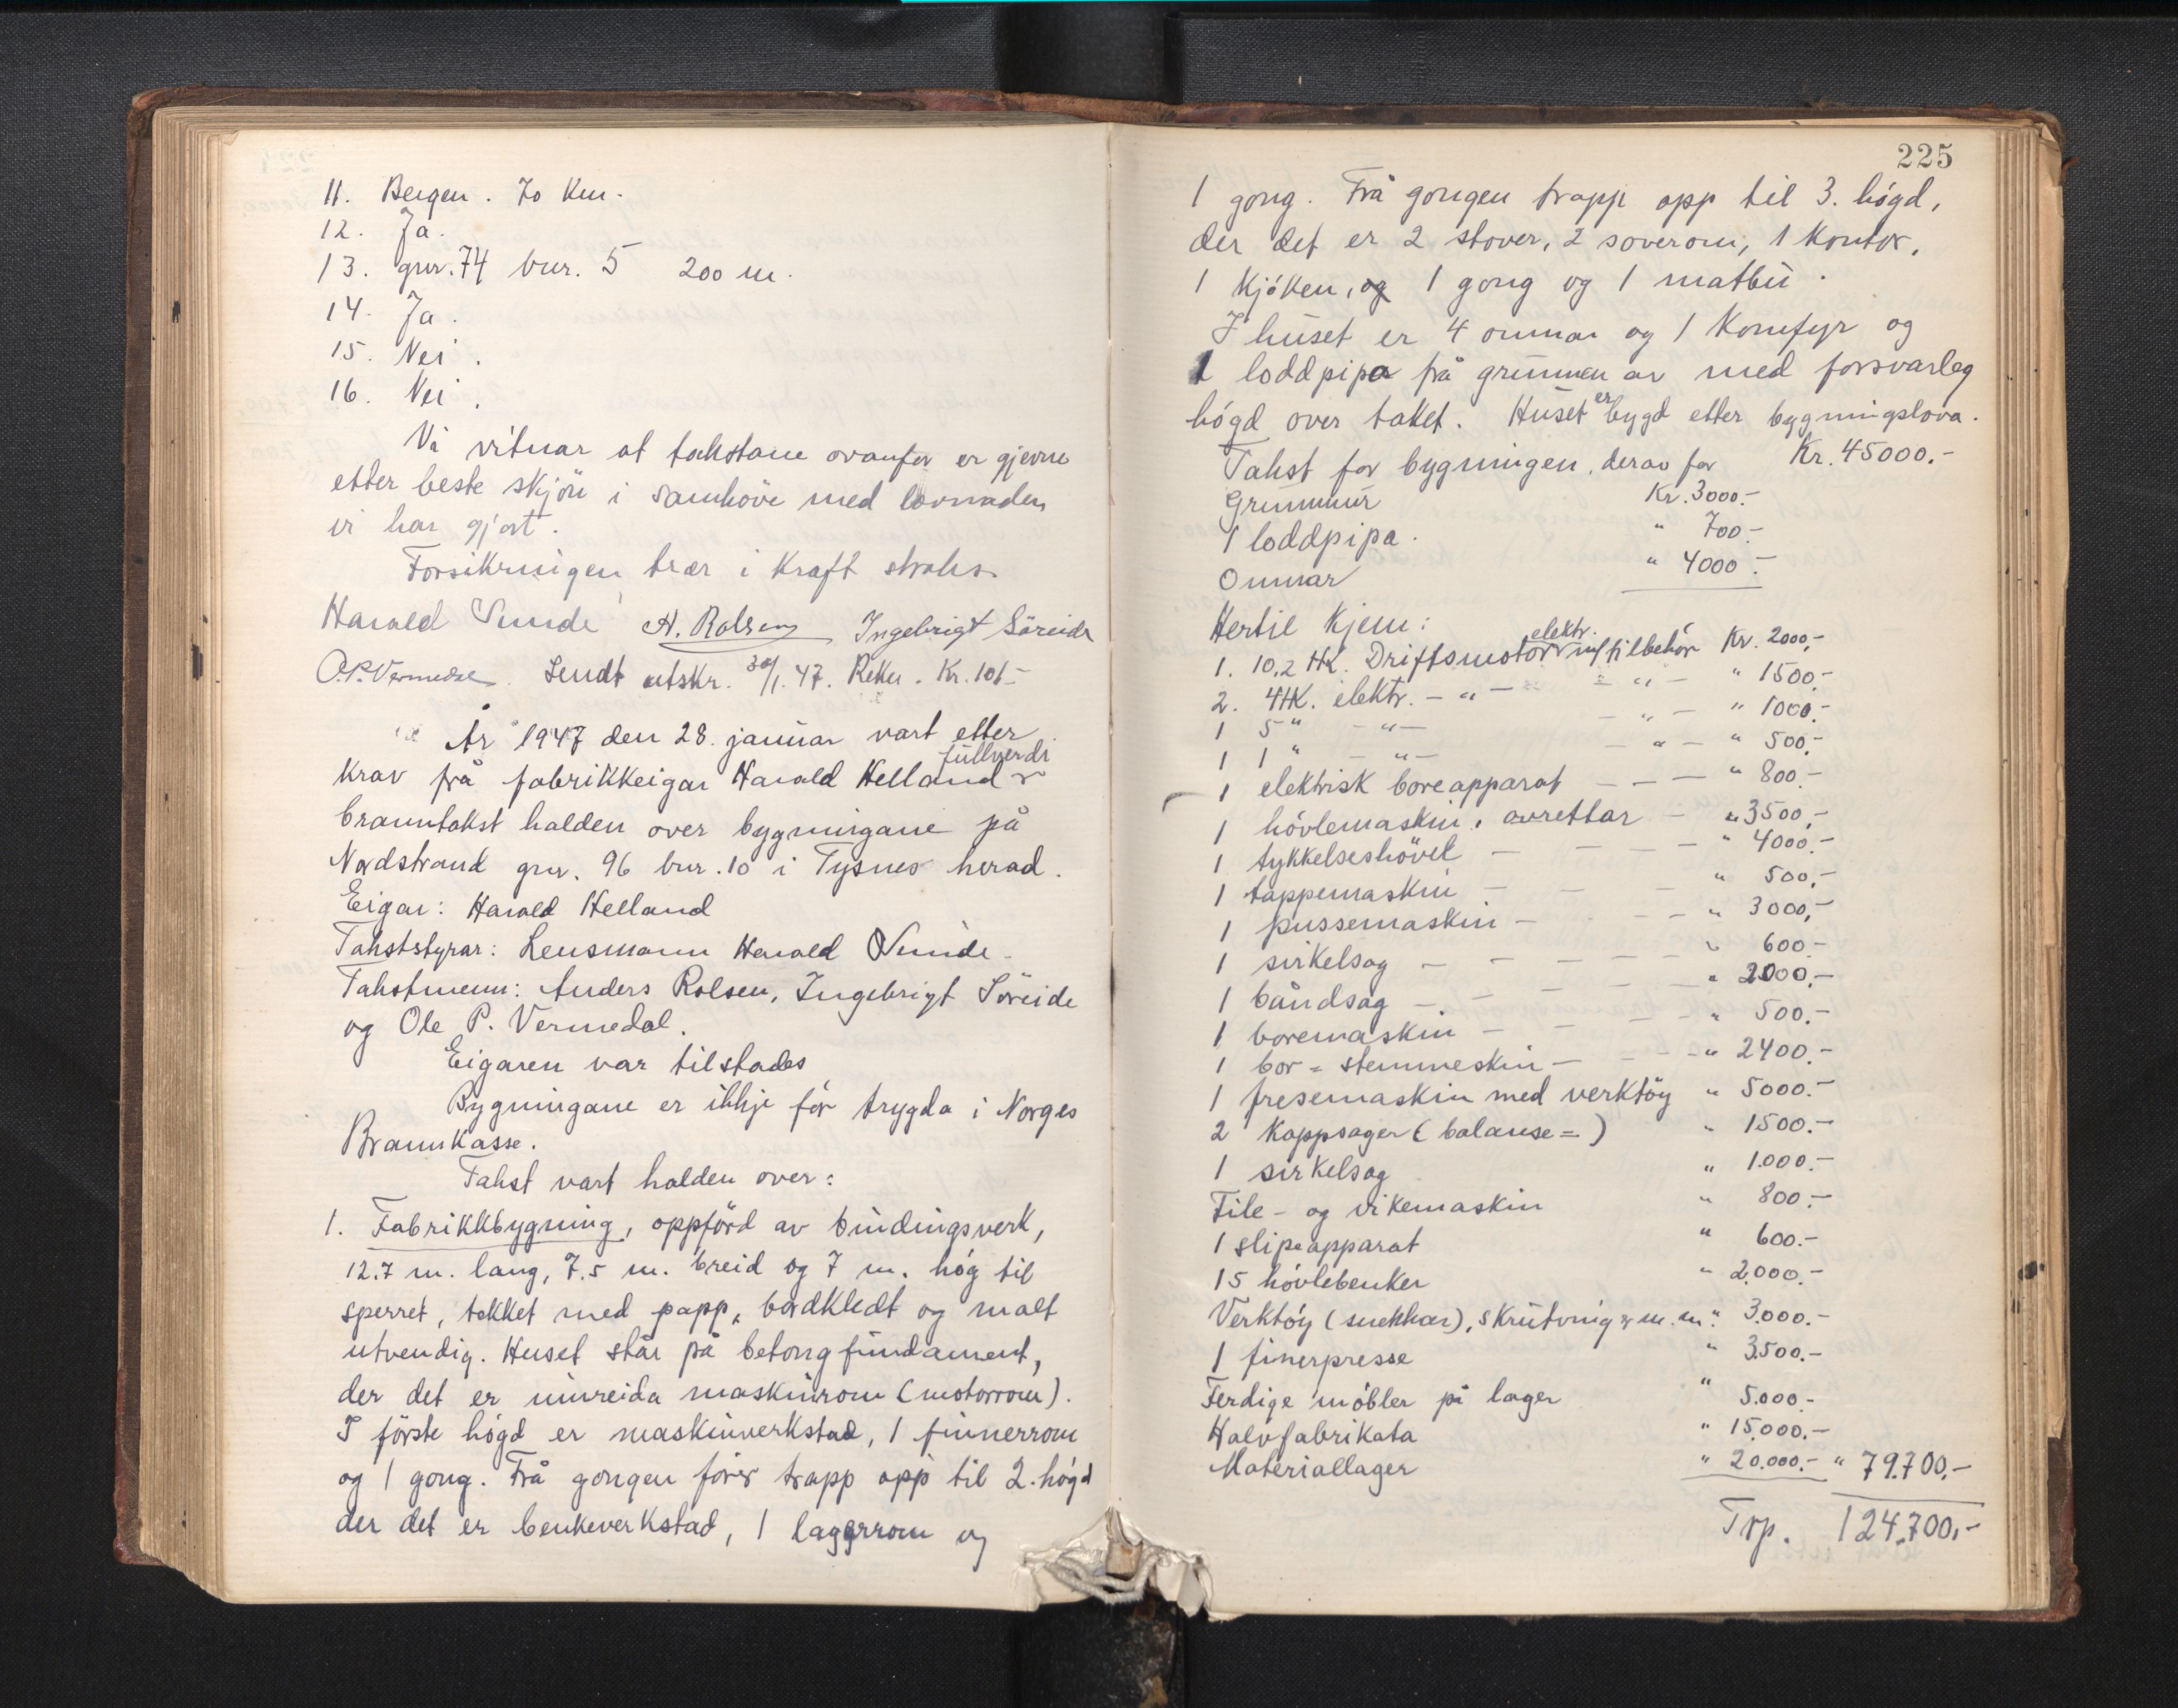 11. Bergen. 70 km.
12. Ja.
13. gnr. 74 bnr. 5 200 m.
14. Ja.
15. Nei.
16. Nei.
Vi vitnar at takstane ovanfor er gjevne
etter beste skjön i samhöve med lovnaden
vi har gjort.
Forsikringen trær i kraft straks.
Harald Sunde A. Rolsen Ingebrigt Söreide
O.P. Vermedal. Sendt utskr. 30/1.47. Rekn. Kr. 101-
År 1947 den 28. januar vart etter
krav frå fabrikkeigar Harald Helland fullverdi
branntakst halden over bygningane på
Nordstrand gnr. 96 bnr. 10 i Tysnes herad.
Eigar: Harald Helland
Takststyrar: Lensmann Harald Sunde.
Takstmenn: Anders Rolsen, Ingebrigt Söreide
og Ole P. Vermedal.
Eigaren var tilstades
Bygningane er ikkje för trygda i Norges
Brannkasse.
Takst vart halden over:
1. Fabrikkbygning, oppförd av bindingsverk,
12.7 m. lang, 7.5 m. breid og 7 m. hög til
sperret, tekket med papp, bordkledt og malt
utvendig. Huset står på betongfundament,
der det er innreida maskinrom (motorrom).
I förste högd er maskinverkstad, 1 finnerrom
og 1 gong. Frå gongen förer trapp opp til 2. högd
der det er benkeverkstad, 1 lagerrom og
225
1 gong. Frå gongen trapp opp til 3. högd,
der det er 2 stover, 2 soverom, 1 kontor,
1 kjöken, og 1 gong og 1 matbu.
I huset er 4 omnar og 1 komfyr og
1 loddpipa frå grunnen av med forsvarleg
högd over taket. Huset er bygd etter bygningslova.
Takst for bygningen, derav for Kr. 45000.-
Grunnmur Kr. 3000.-
1 loddpipa. " 700.-
Omnar " 4000.-
Hertil kjem:
1. 10,2 HK. elektr. Driftsmotor m/tilbehör Kr. 2000,-
2. 4HK. elektr. - " - - " - " 1500.-
1 5 " - " - - " - " 1000.-
1 1 " - " - - " - " 500,-
1 elektrisk boreapparat - - - " 800.-
1 hövlemaskin, avrettar - " 3500,-
1 tykkelseshövel - - - - " 4000.-
1 tappemaskin - - - " 500,-
1 pussemaskin - - - " 3000,-
1 sirkelsag - - - - - " 600.-
1 båndsag - - - - - " 2000,-
1 boremaskin - - - - " 500.-
1 bor = stemmeskin - - - - " 2400.-
1 fresemaskin med verktöy " 5000.-
2 kappsager (balanse =) " 1500.-
1 sirkelsag " 1.000.-
File- og vikemaskin " 800.-
1 slipeapparat " 600.-
15 hövlebenker " 2.000.-
Verktöy (snekkar), skrutving m.m. " 3.000.-
1 finerpresse " 3.500.-
Ferdige möbler på lager " 5.000.-
Halvfabrikata " 15.000.-
Materiallager " 20.000.- " 79.700,-
Trp. 124.700,-